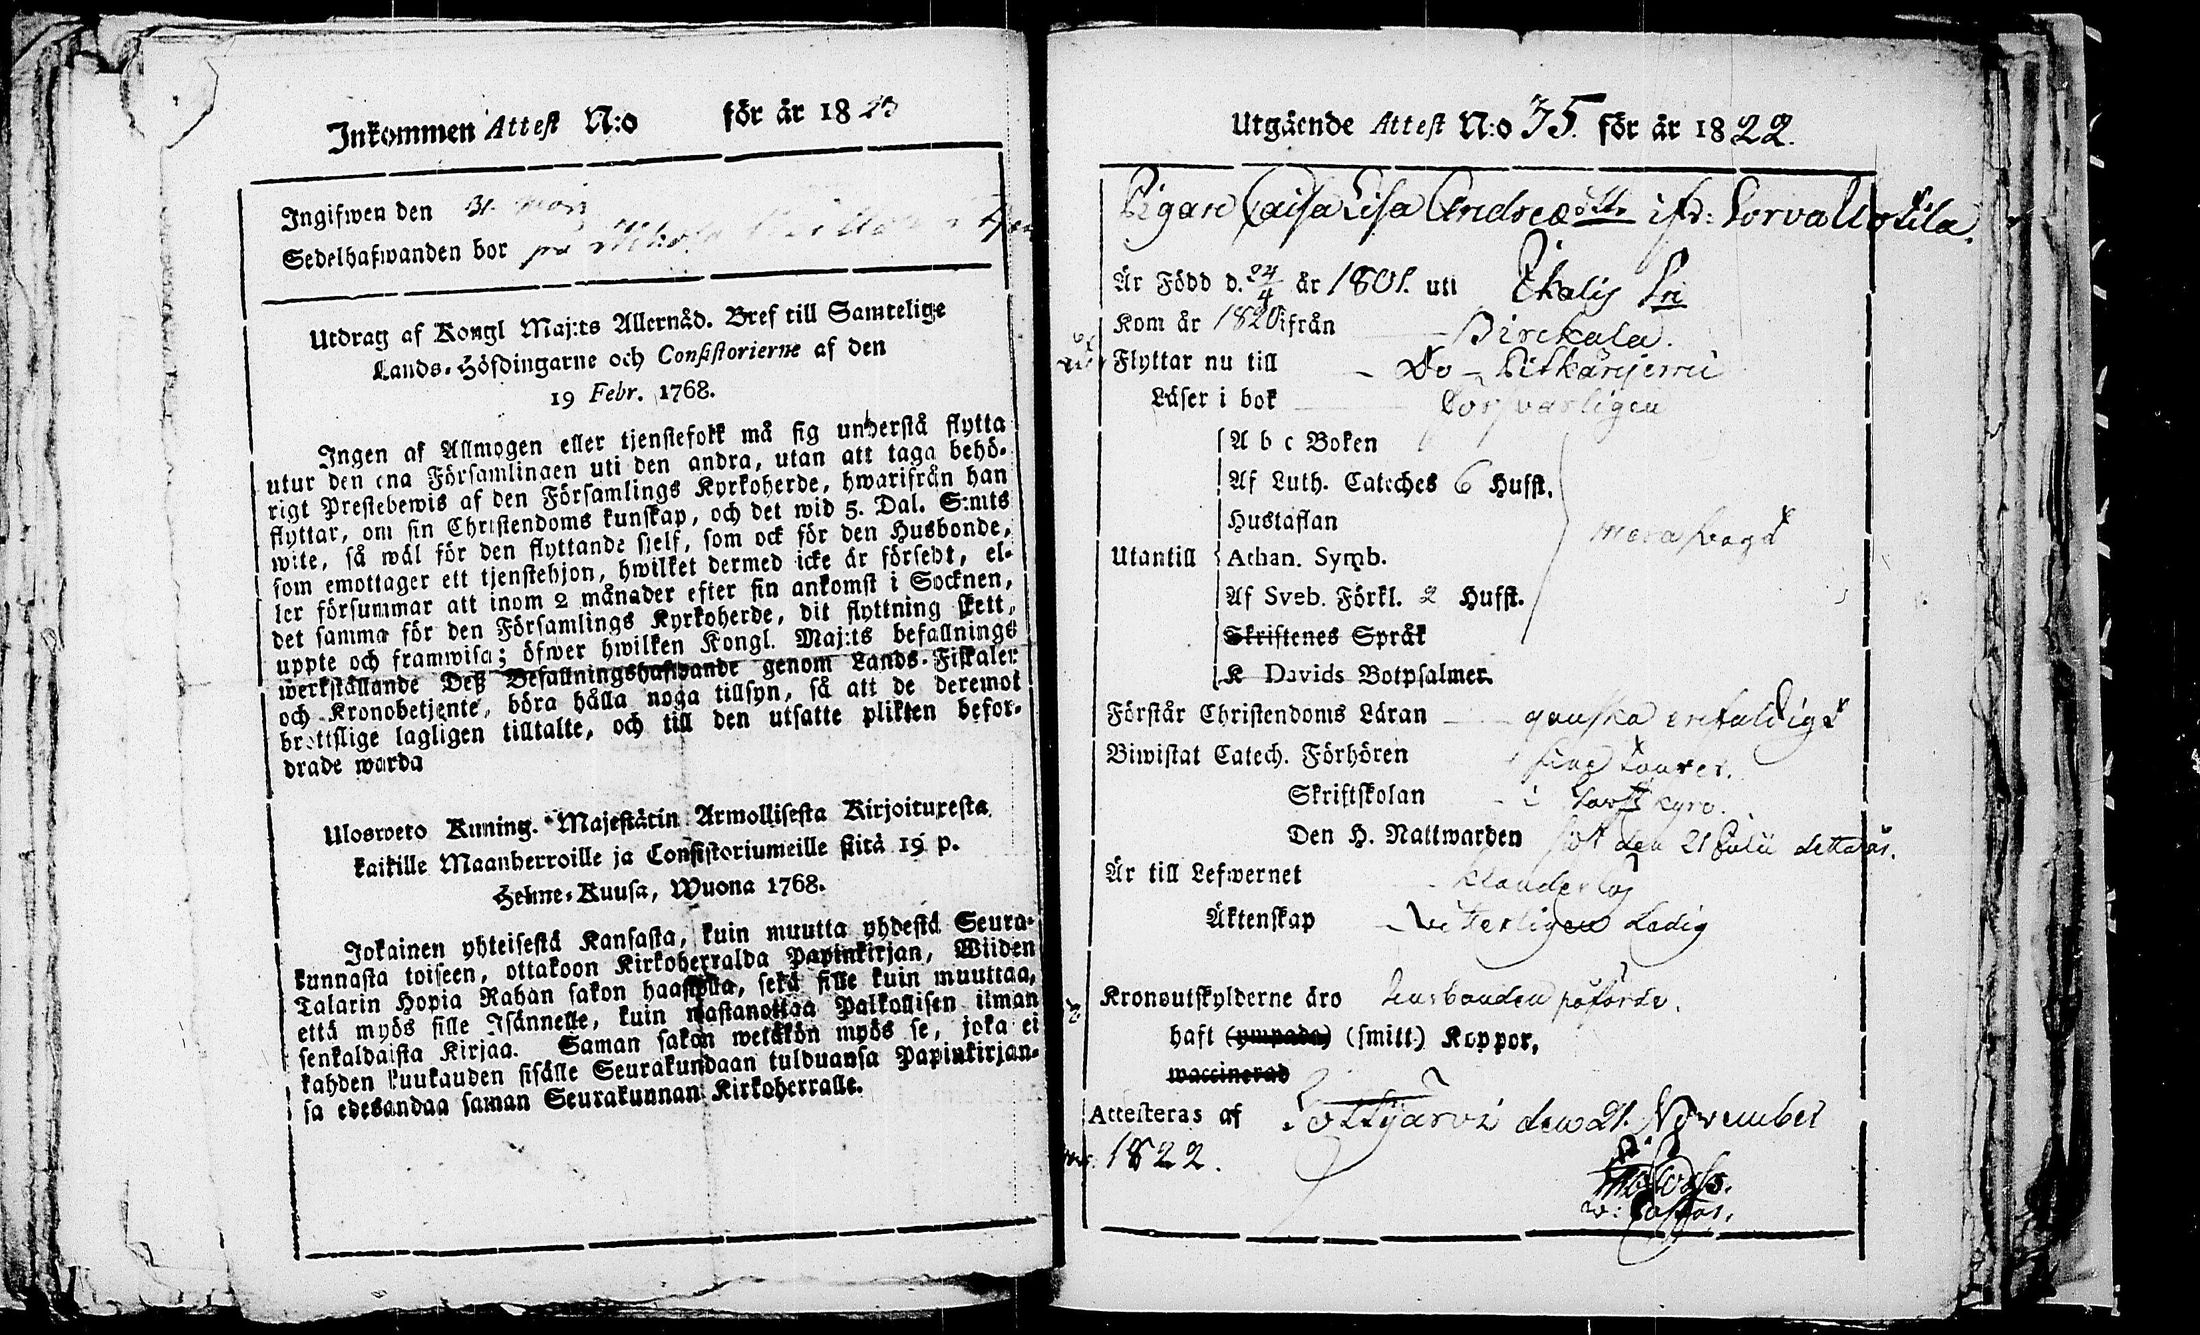 Inkommen Attest N:o för år 1823
Ingifwen den 31 Mars
Sedelhafwanden bor på
Utdrag af Kongl Maj:ts Allernåd. Bref till Samtelige
Lands-Höfdingarne och Consistorierne af den
19 Febr. 1768.
Ingen af Allmogen eller tjenstefolk må sig understå flytta
utur den ena Församlingen uti den andra, utan att taga behö-
rigt Prestebewis af den Församlings Kyrkoherde, hwarifrån han
flyttar, om sin Christendoms kunskap, och det wid 5. Dal. S:mts
wite, så wäl för den flyttande sjelf, som ock för den Husbonde,
som emottager ett tjenstehjon, hwilket dermed icke är försedt, el-
ler försummar att inom 2 månader efter sin ankomst i Socknen,
det samma för den Församlings Kyrkoherde, dit flyttning skett,
uppte och framwisa; öfwer hwilken Kongl. Maj:ts befallnings
werkställande Deß Befallningshafwande genom Lands-Fiskaler
och Kronobetjente, böra hålla noga tillsyn, så att de deremot
brottslige lagligen tilltalte, och till den utsatte plikten befor-
drade warda
Ulosweto Kuning. Majestätin Armollisesta Kirjoituxesta
kaikille Maanherroille ja Consistoriumeille siitä 19 p.
Helme-Kuusa, Wuona 1768.
Jokainen yhteisestä Kansasta, kuin muutta yhdestä Seura-
kunnasta toiseen, ottakoon Kirkoherralda Papinkirjan, Wiiden
Talarin Hopia Rahan sakon haastolla, sekä sille kuin muuttaa,
että myös sille Isännelle, kuin wastanottaa Palkollisen ilman
senkaldaista Kirjaa. Saman sakon wetäkön myös se, joka ei
kahden kuukauden sisälle Seurakundaan tulduansa Papinkirjan-
sa edesandaa saman Seurakunnan Kirkoherralle.
Utgående Attest N:o 35. för år 1822.
Pigan Caisa Lisa Andreæ dtr ifr: Sorva Ustila.
Är Född d. 24/4 år 1801. uti Ikalis Sn
Kom år 1820 ifrån Birckala.
Flyttar nu till Do Pitkänjemi
Läser i bok försvarligen
A b c Boken
Af Luth. Cateches 6 Hufst.
Hustaflan
Utantill Athan. Symb.
Af Sveb. Förkl. 2 Hufst.
Skriftenes Språk
K Davids Botpsalmer.
Förstår Christendoms Läran ganska enfaldigt
Biwistat Catech. Förhören
Skriftskolan i
Den H. Nattwarden den 21 Julii detta år.
Är till Lefwernet klanderlös
Äktenskap witterligen Ledig
Kronoutskylderne äro husbonden påförde.
haft (ympade) (smitt.) Koppor,
waccinerad
Attesteras af Tottijärvi den 21. November
1822.